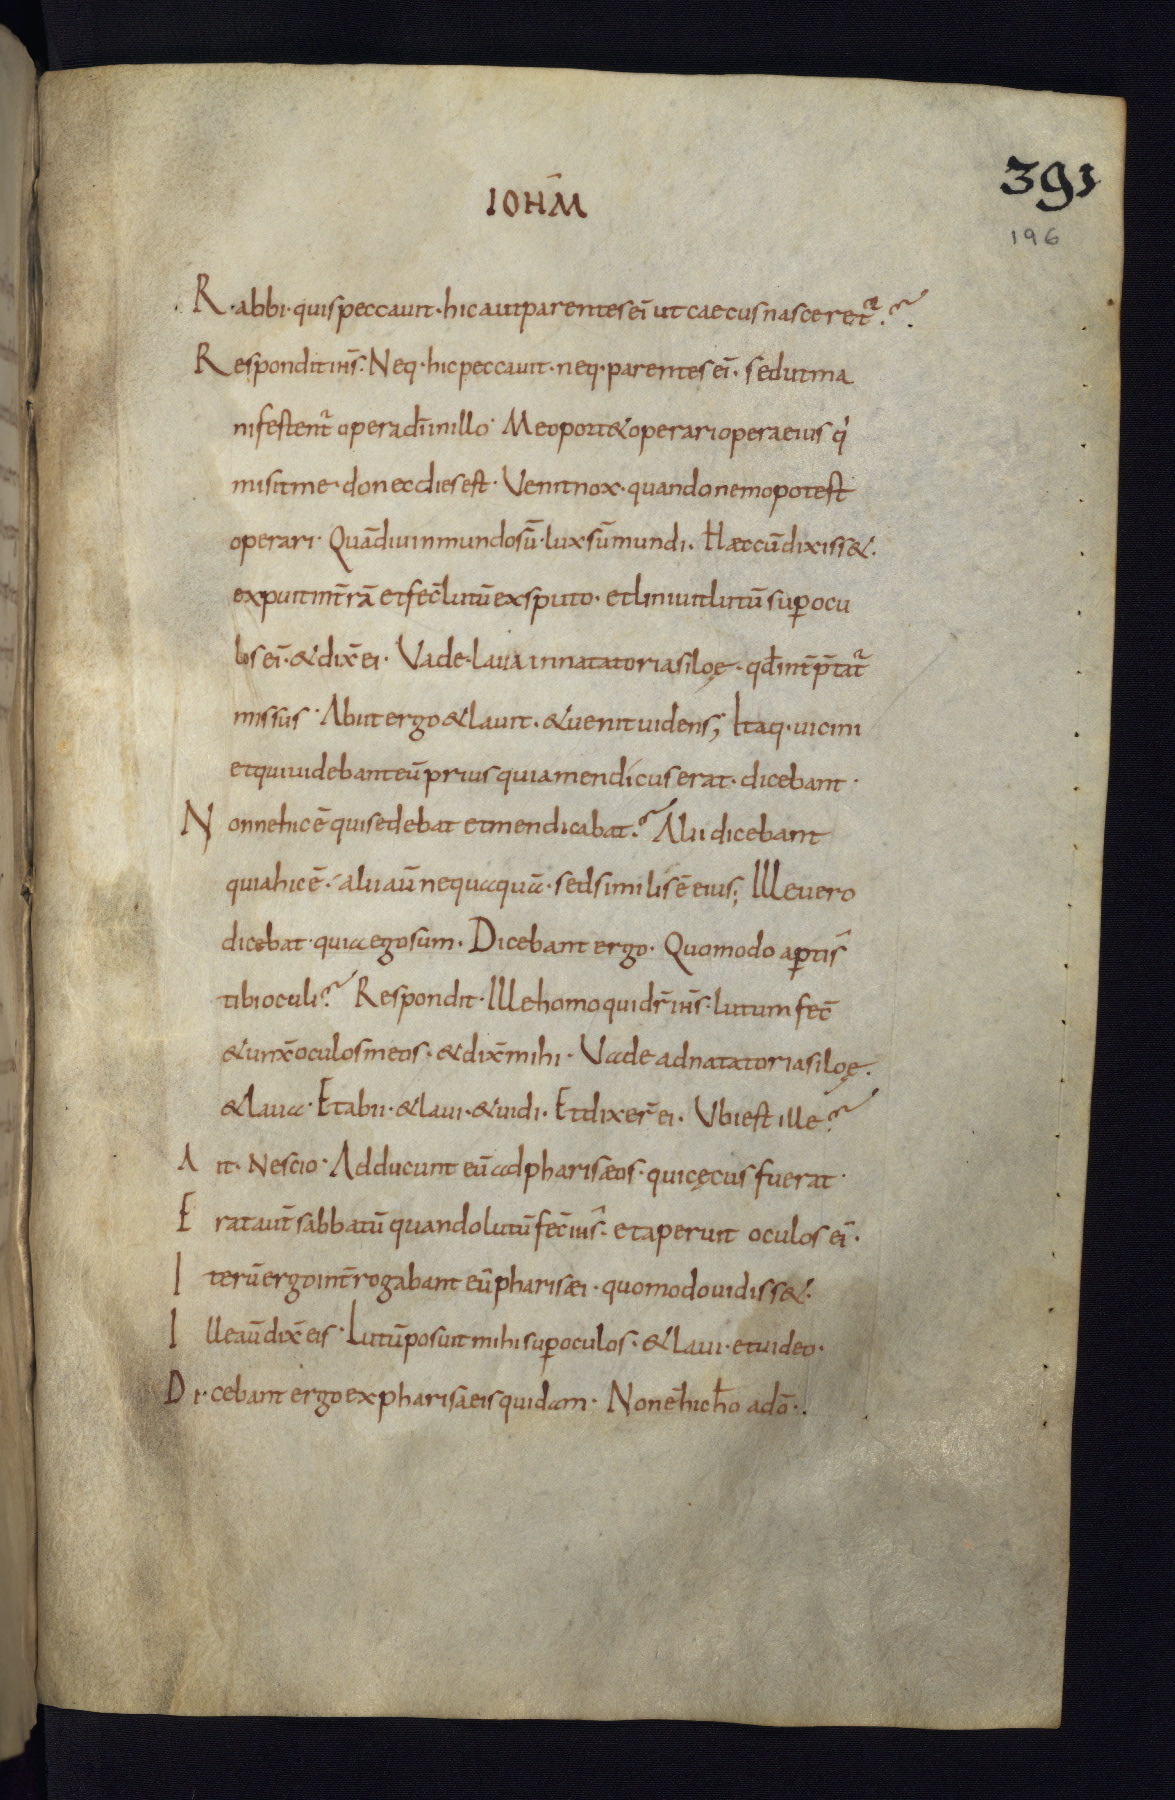 IOHM̄
391
196
R·abbi· quis peccauit· hic aut parentes ei᾽ ut caecus nasceret᷑·?
Respondit ih̄s· Neq· hic peccauit· neq· parentes ei᾽· sed ut ma
nifestent᷑ opera dī in illo· Me oport& operari opera eius q᷑
misit me· donec dies est· Venit nox· quando nemo potest
operari· Quādiu in mundo sū· lux sū mundi· Hæc cū dixiss&·
expuit int̄rā et fec̄ lutū ex sputo· et liniuit lutū sup̱ ocu
los ei᾽· & dix̄ ei· Vade· laua in natatoria siloę· qd̄ int̄p̄tat᷑
missus· Abiit ergo & lauit· & uenit uidens; Itaq· uicini
et qui uidebant eū prius quia mendicus erat· dicebant·
Nonne hic ē qui sedebat et mendicabat·? Alii dicebant
quia hic ē· alii aū nequaquā· sed similis ē eius; Ille uero
dicebat· quia ego sum· Dicebant ergo· Quomodo ap̱ti s̄
tibi oculi? Respondit· Ille homo qui dr̄ ih̄s· lutum fec̄
& unx̄ oculos meos· & dix̄ mihi· Vade ad natatoria siloę·
& laua· Et abii· & laui· & uidi· Et dixer̄ ei· Vbi est ille?
Ait· Nescio· Adducunt eū ad pharisæos· qui cęcus fuerat·
Erat aut̄ sabbatū quando lutū fec̄ ih̄s· et aperuit oculos ei᾽·
Iterū ergo int̄rogabant eū pharisæi· quomodo uidiss&·
Ille aū dix̄ eis· Lutū posuit mihi sup̱ oculos· & laui· et uideo·
Di·cebant ergo ex pharisæis quidam· Non ē hic ho a dō·.